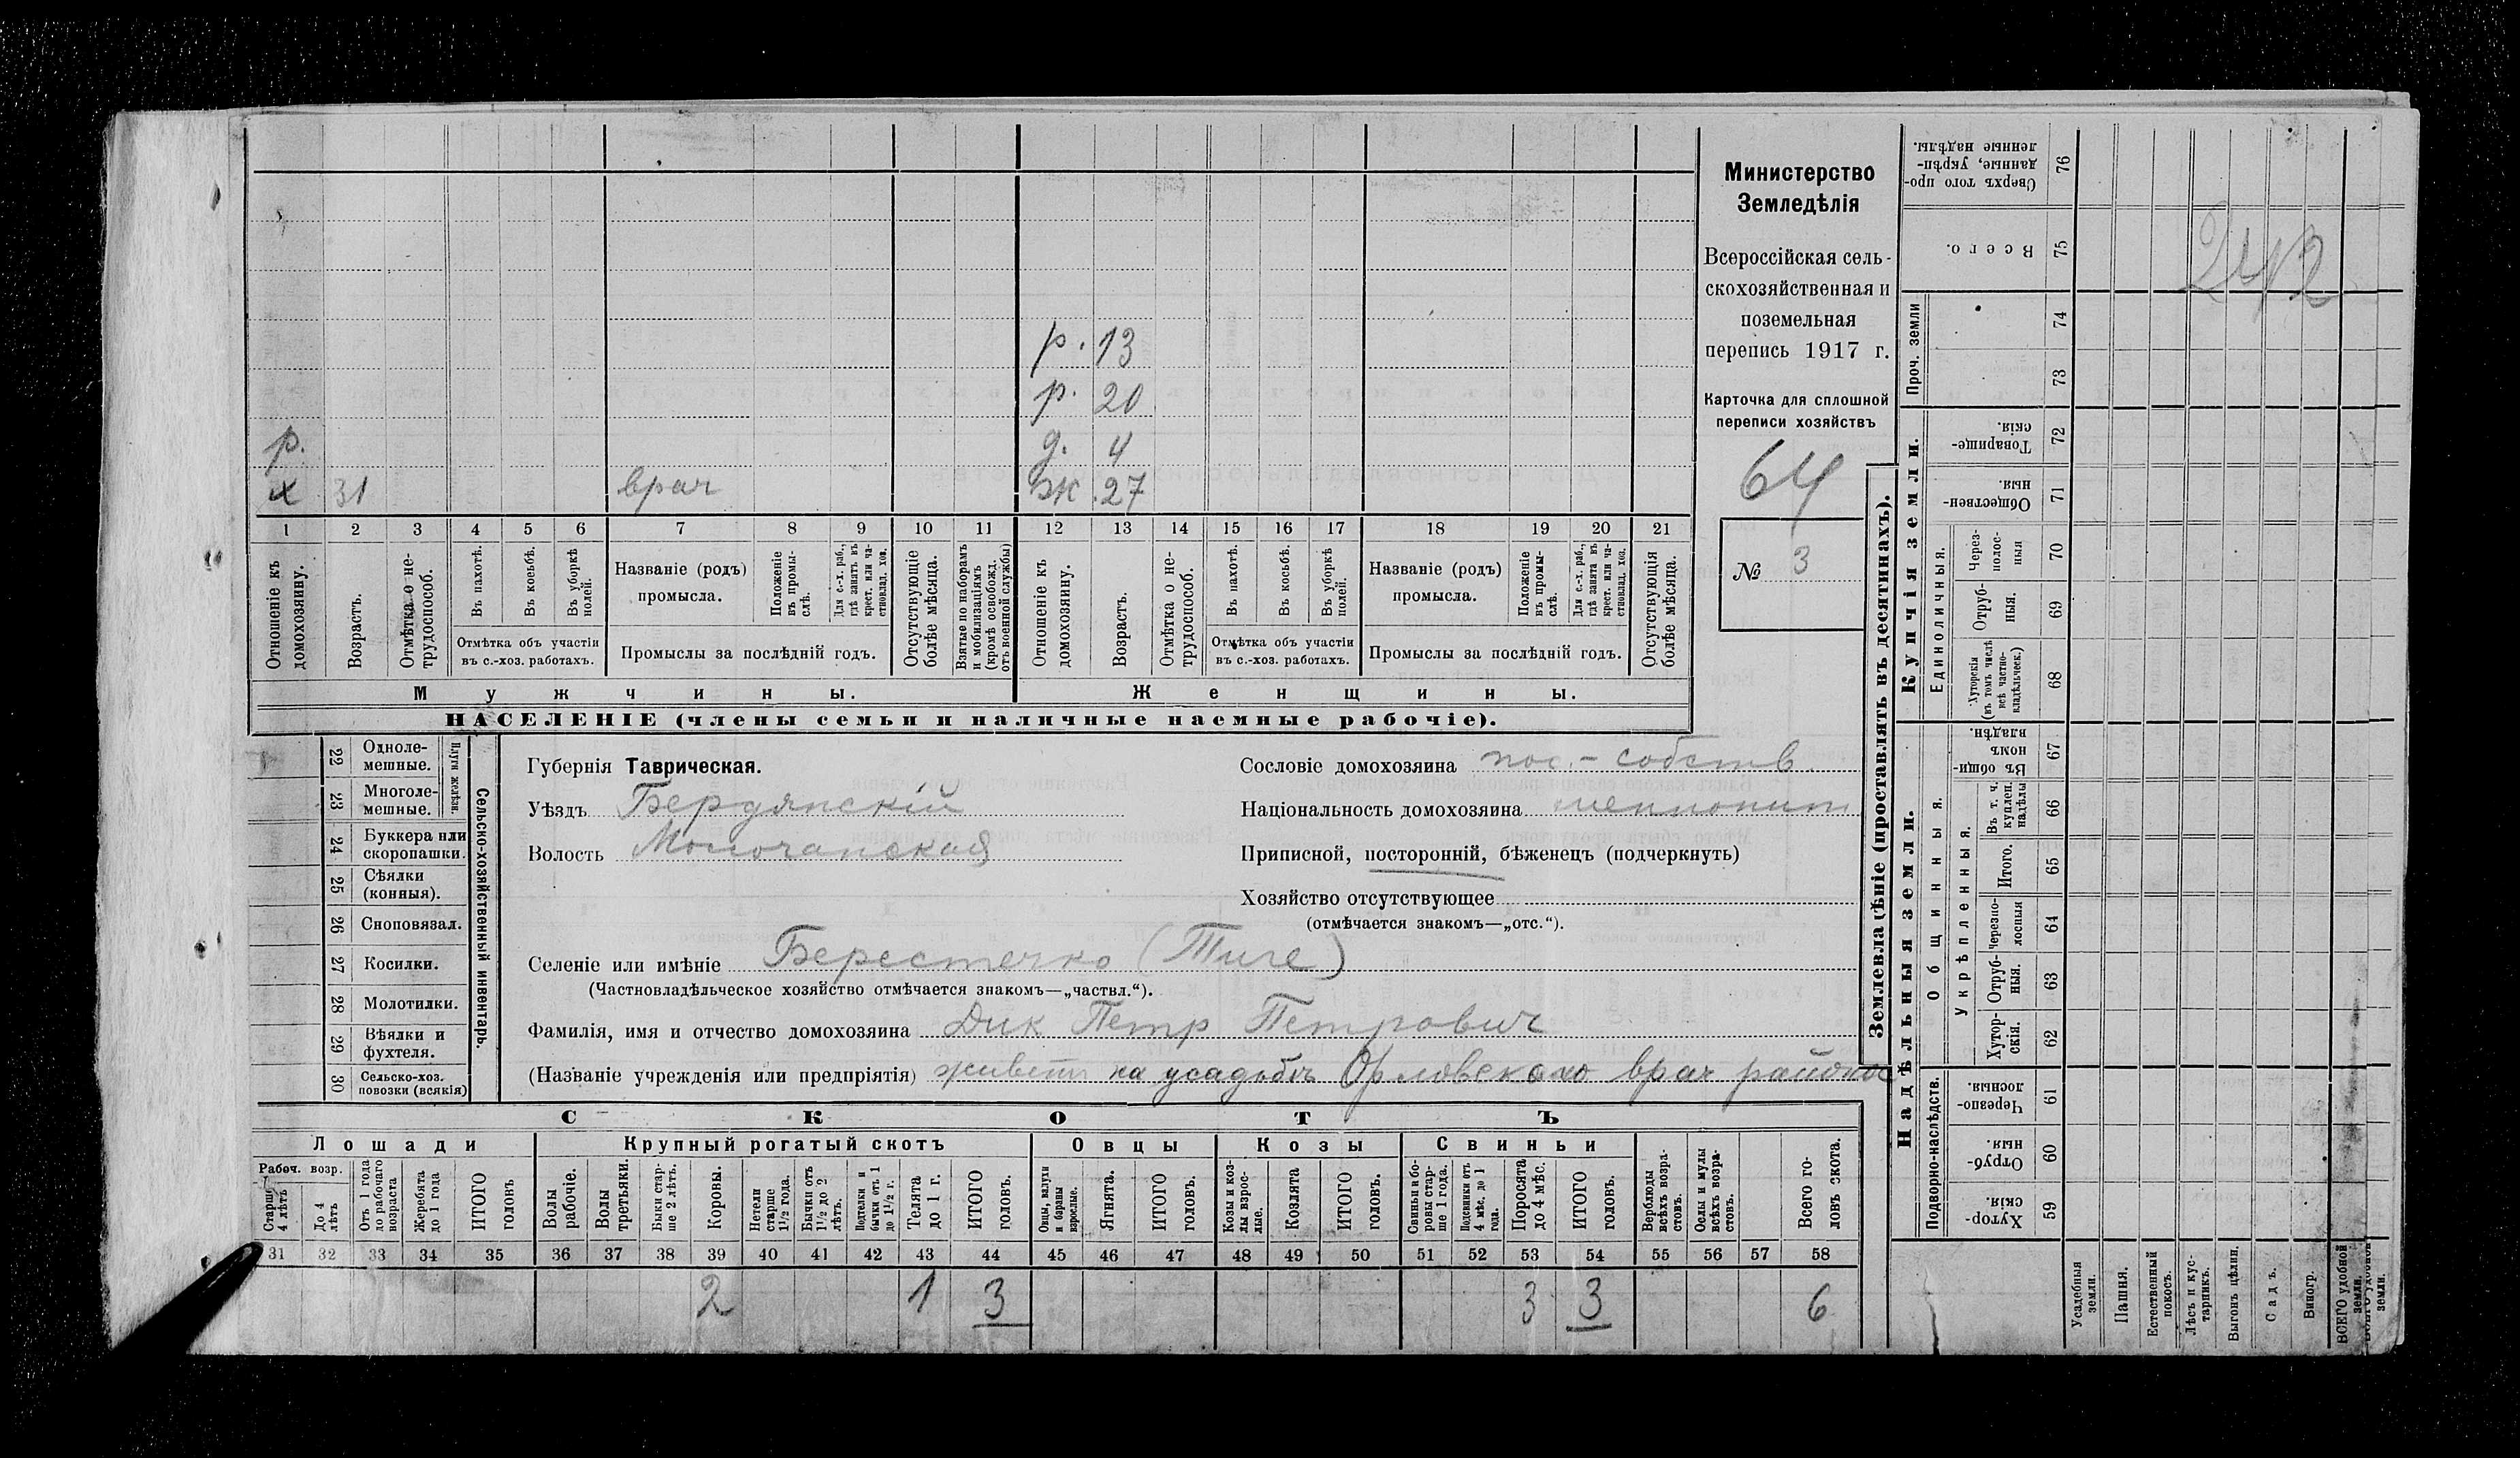 р. 13
р. 20
р. д. 4
х 31 врач ж. 27
1 2 3 4 5 6 7 8 9 10 11 12 13 14 15 16 17 18 19 20 21
Отношеніе къ домохозяину.
Возрастъ.
Отмѣтка о не-трудоспособ.
Въ пахотѣ.
Въ косьбѣ.
Въ уборкѣ полей.
Отмѣтка объ участіи
въ с.-хоз. работахъ.
Названіе (родъ)
промысла.
Положеніе въ промы-слѣ.
Для с.-х. раб., гдѣ занятъ въ крест. или ча-стновлад. хоз.
Промыслы за послѣдній годъ.
Отсутствующіе болѣе мѣсяца.
Взятые по наборамъ и мобилизаціямъ (кромѣ освобожд. отъ военной службы)
Отношеніе къ домохозяину.
Возрастъ.
Отмѣтка о не-трудоспособ.
Въ пахотѣ.
Въ косьбѣ.
Въ уборкѣ полей.
Отмѣтка объ участіи
въ с.-хоз. работахъ.
Названіе (родъ)
промысла.
Положеніе въ промы-слѣ.
Для с.-х. раб., гдѣ занята въ крест. или ча-стновлад. хоз.
Промыслы за послѣдній годъ.
Отсутствующія болѣе мѣсяца.
Мужчины.
Женщины.
НАСЕЛЕНІЕ (члены семьи и наличные наемные рабочіе).
Министерство
Земледѣлія
Всероссійская сель-
скохозяйственная и
поземельная
перепись 1917 г.
Карточка для сплошной
переписи хозяйствъ
64
№ 3
22 Одноле-мешные.
23 Многоле-мешные.
Плуги желѣзн.
24 Буккера или скоропашки.
25 Сѣялки (конныя).
26 Сноповязал.
27 Косилки.
28 Молотилки.
29 Вѣялки и фухтеля.
30 Сельско-хоз. повозки (всякія)
Сельско-хозяйственный инвентарь.
Губернія Таврическая.
Уѣздъ Бердянскій
Волость Молочанская
Сословіе домохозяина пос.-собств.
Національность домохозяина меннонит
Приписной, посторонній, бѣженецъ (подчеркнуть)
Хозяйство отсутствующее
(отмѣчается знакомъ—„отс.“).
Селеніе или имѣніе Берестечко (Тиге)
(Частновладѣльческое хозяйство отмѣчается знакомъ—„частвл.“).
Фамилія, имя и отчество домохозяина Дик Петр Петрович
(Названіе учрежденія или предпріятія) живетъ на усадьбѣ Орловского врач
СКОТЪ
Лошади
Крупный рогатый скотъ
Овцы
Козы
Свиньи
Рабоч. возр.
Старше 4 лѣтъ
До 4 лѣтъ
Отъ 1 года до рабочаго возраста
Жеребята до 1 года
ИТОГО головъ
Волы рабочіе.
Волы третьяки.
Быки стар-ше 2 лѣтъ.
Коровы.
Нетели старше 1½ года.
Бычки отъ 1½ до 2 лѣтъ.
Подтелки и бычки отъ 1 до 1½ г.
Телята до 1 г.
ИТОГО головъ.
Овцы, валухи и бараны взрослые.
Ягнята.
ИТОГО головъ.
Козы и коз-лы взрос-лые.
Козлята
ИТОГО головъ.
Свиньи и бо-ровы стар-ше 1 года.
Подсвинки отъ 4 мѣс. до 1 года.
Поросята до 4 мѣс.
ИТОГО головъ.
Верблюды всѣхъ возра-стовъ.
Ослы и мулы всѣхъ возра-стовъ.
Всего го-ловъ скота.
31 32 33 34 35 36 37 38 39 40 41 42 43 44 45 46 47 48 49 50 51 52 53 54 55 56 57 58
2 1 3 3 3 6
Землевладѣніе (проставлять въ десятинахъ).
Купчія земли.
Надѣльныя земли.
76 Сверхъ того про-данные, укрѣп-ленные надѣлы.
75 Всего.
Проч. земли
74
73
72 Товарище-скія.
71 Обществен-ныя.
Единоличныя.
70 Через-полос-ныя
69 Отруб-ныя.
68 Хуторскія (въ томъ числѣ всѣ частно-владѣльческ.)
67 Въ общин-номъ владѣн.
Общинныя.
Укрѣпленныя.
66 Въ т. ч. куплен. надѣлы
65 Итого.
64 Черезпо-лосныя
63 Отруб-ныя.
62 Хутор-скія.
Подворно-наслѣдств.
61 Черезпо-лосныя.
60 Отруб-ныя.
59 Хутор-скія.
Усадебныя земли.
Пашня.
Естественный покосъ.
Лѣсъ и кус-тарникъ.
Выгонъ цѣлин.
Садъ.
Виногр.
ВСЕГО удобной земли.
242